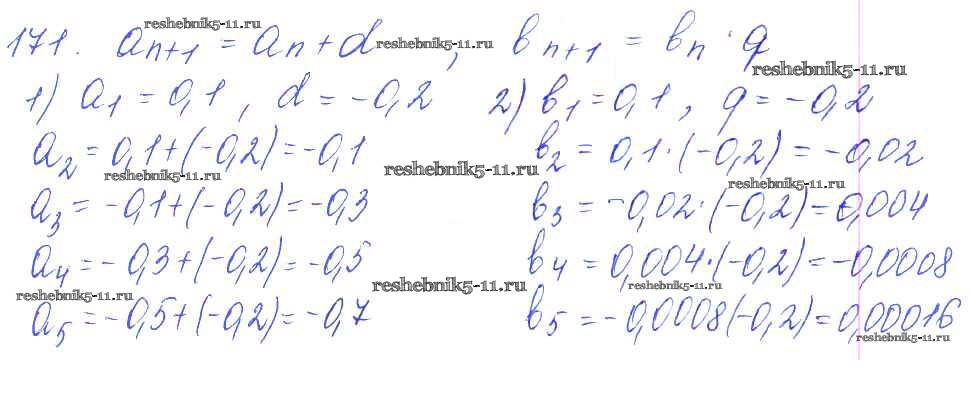 reshebnik5-11.ru
171. aₙ₊₁ = aₙ + d, reshebnik5-11.ru bₙ₊₁ = bₙ · q
reshebnik5-11.ru
1) a₁ = 0,1, d = -0,2 2) b₁ = 0,1, q = -0,2
a₂ = 0,1+(-0,2) = -0,1 b₂ = 0,1·(-0,2) = -0,02
reshebnik5-11.ru reshebnik5-11.ru reshebnik5-11.ru
a₃ = -0,1+(-0,2) = -0,3 b₃ = -0,02·(-0,2) = 0,004
a₄ = -0,3+(-0,2) = -0,5 b₄ = 0,004·(-0,2) = -0,0008
reshebnik5-11.ru reshebnik5-11.ru reshebnik5-11.ru
a₅ = -0,5+(-0,2) = -0,7 b₅ = -0,0008(-0,2) = 0,00016
reshebnik5-11.ru